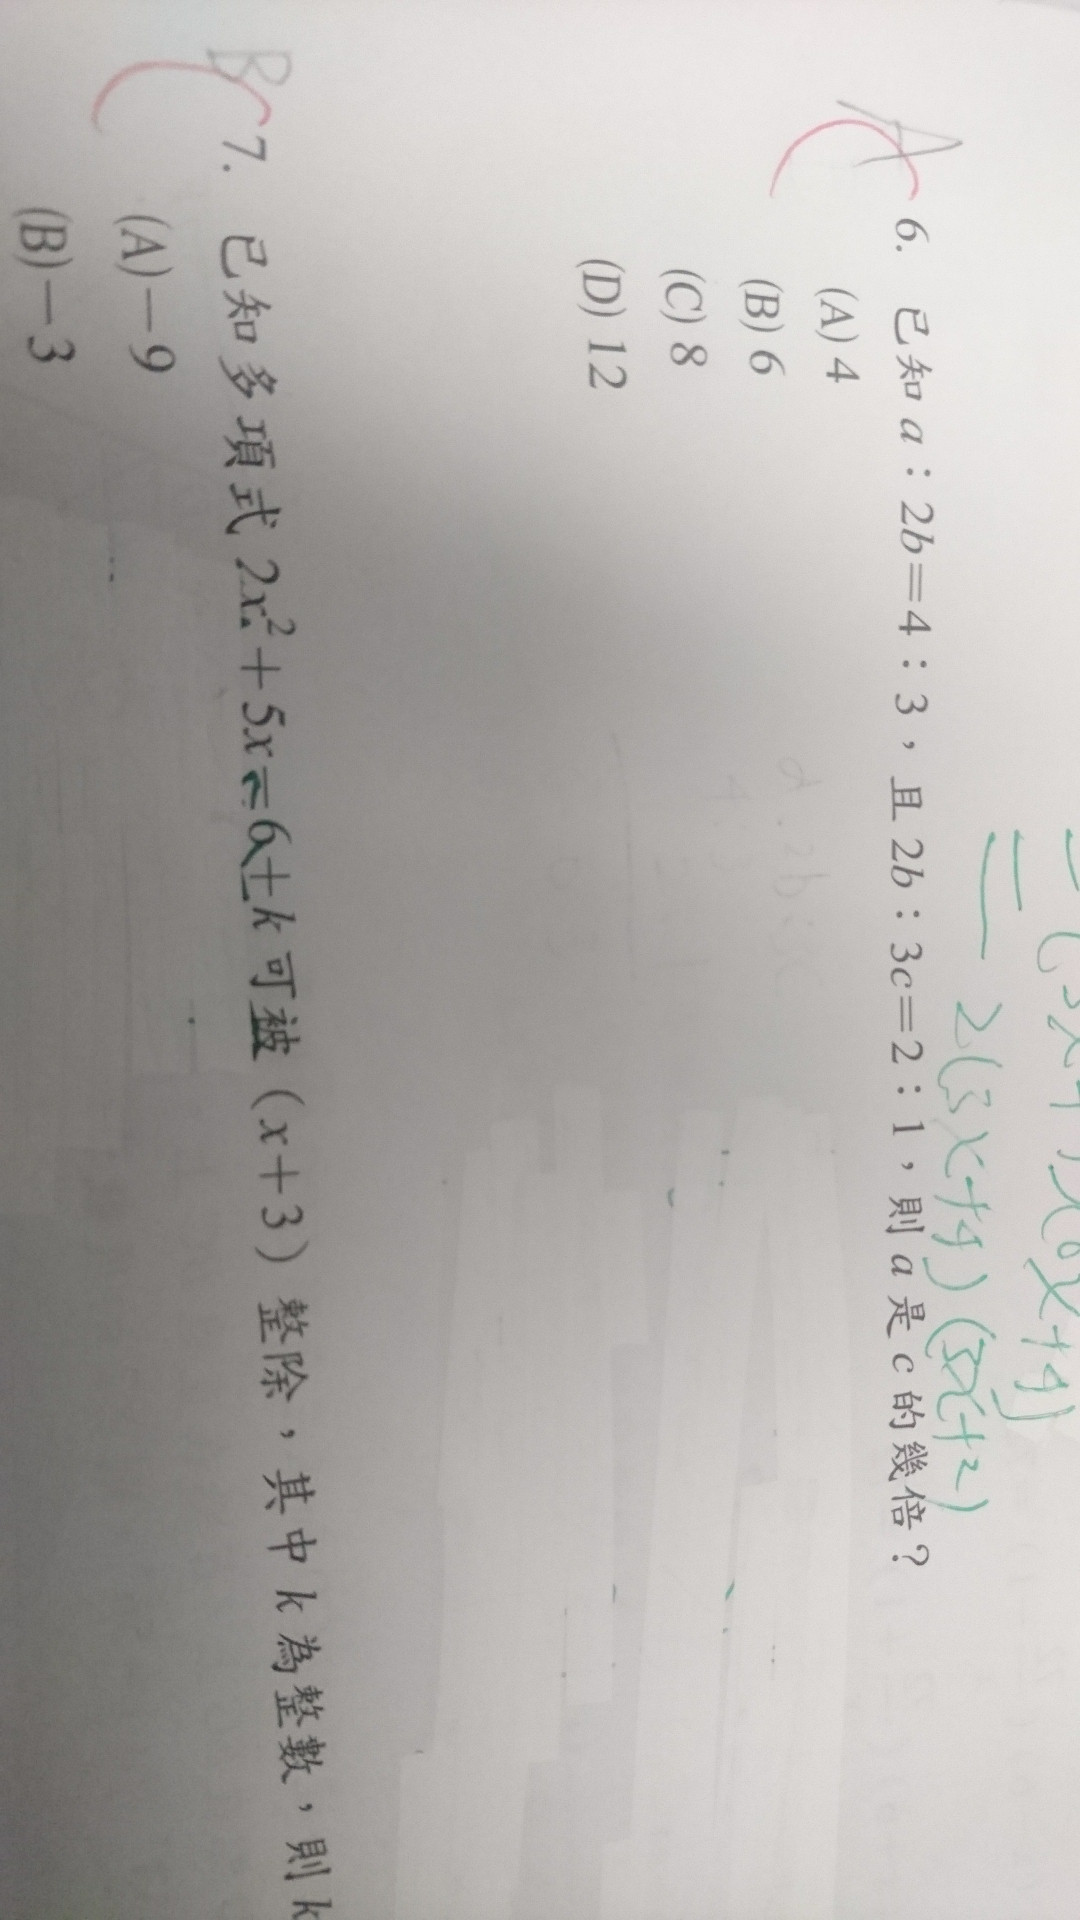 2(3x+4)(5x+2)
A 6. 已知 a：2b=4：3，且 2b：3c=2：1，則 a 是 c 的幾倍？
(A) 4
(B) 6
(C) 8
(D) 12
B 7. 已知多項式 2x²+5x-6+k 可被 (x+3) 整除，其中 k 為整數，則 k
(A) -9
(B) -3